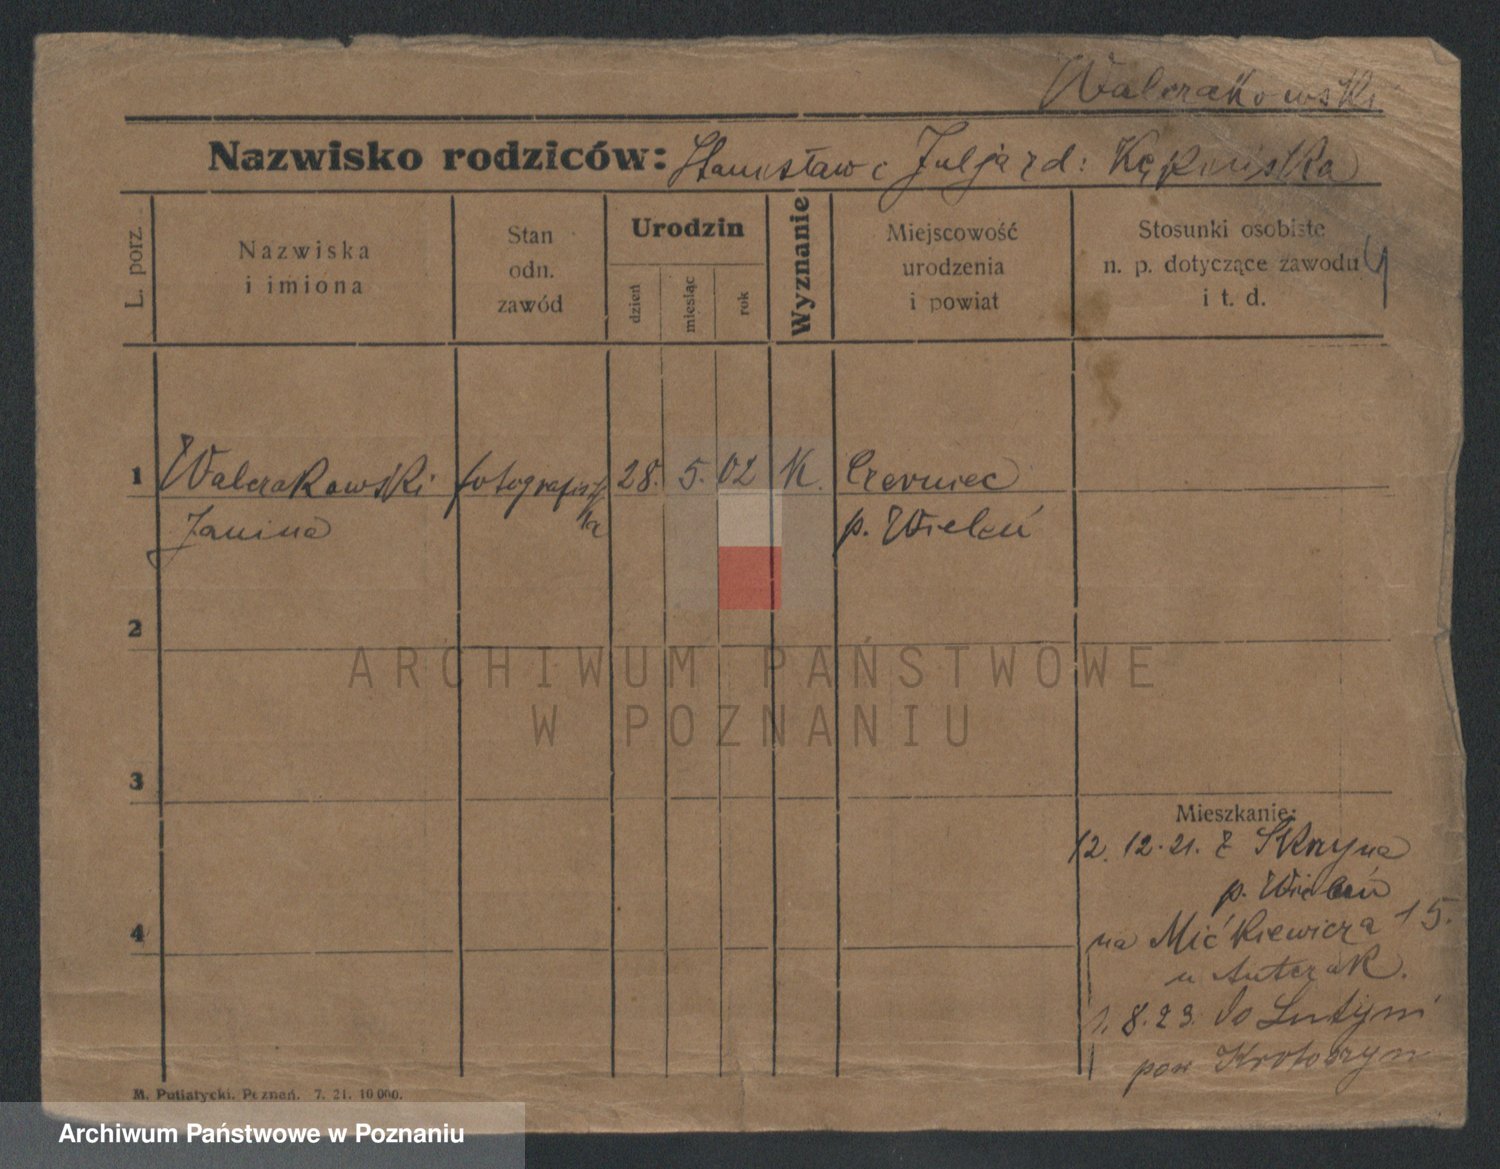 Walczakowski
Nazwisko rodziców: Stanisław i Julja zd: Kępińska
L. porz.
Nazwiska
i imiona
Stan
odn.
zawód
Urodzin
dzień
miesiąc
rok
Wyznanie
Miejscowość
urodzenia
i powiat
Stosunki osobiste
n. p. dotyczące zawodu
i t. d.
1 Walczakowski fotografist 28. 5. 02 K. Czerniec
Janina ka p. Wieleń
2
3
4
Mieszkanie:
12. 12. 21. z
p. Wieleń
na Mickiewicza 15.
u Antczak.
1. 8. 23. do Lutyni
pow Krotoszyn
M. Putiatycki, Poznań. 7. 21. 10 000.
ARCHIWUM PAŃSTWOWE
W POZNANIU
Archiwum Państwowe w Poznaniu